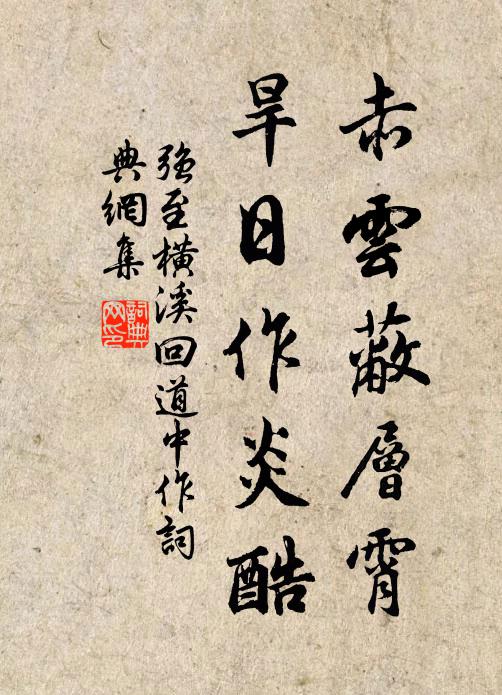 赤雲蔽層霄
旱日作炎酷
強至橫溪回道中作詞
典網集
詞典網印